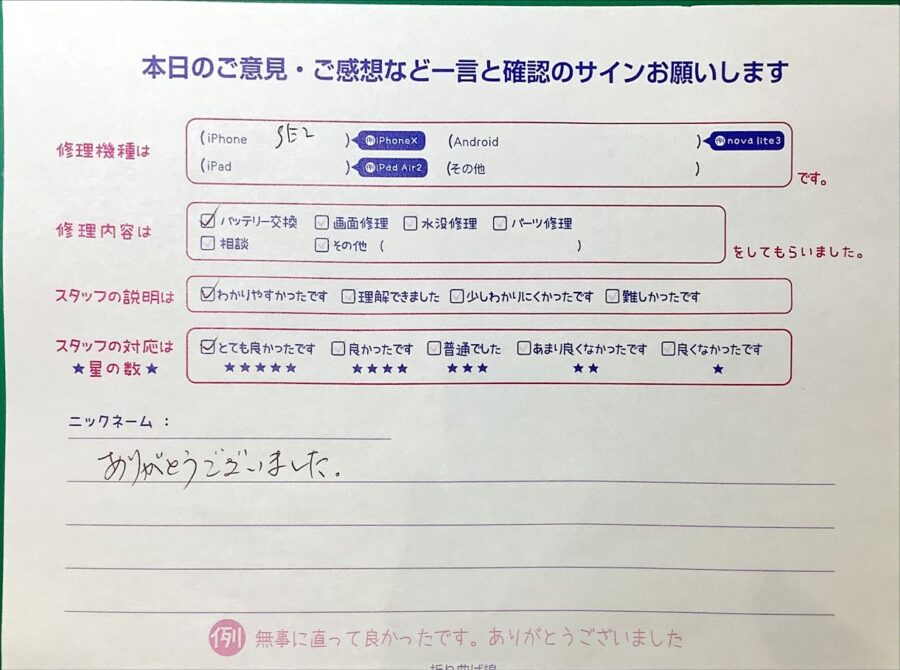 本日のご意見・ご感想など一言と確認のサインお願いします
修理機種は
(iPhone SE2 ) 例iPhoneX (Android ) 例nova lite3
(iPad ) 例iPad Air2 (その他 ) です。
修理内容は
バッテリー交換 画面修理 水没修理 パーツ修理
相談 その他 ( ) をしてもらいました。
スタッフの説明は わかりやすかったです 理解できました 少しわかりにくかったです 難しかったです
スタッフの対応は とても良かったです 良かったです 普通でした あまり良くなかったです 良くなかったです
★星の数★ ★★★★★ ★★★★ ★★★ ★★ ★
ニックネーム：
ありがとうございました。
例 無事に直って良かったです。ありがとうございました
折り曲げ線